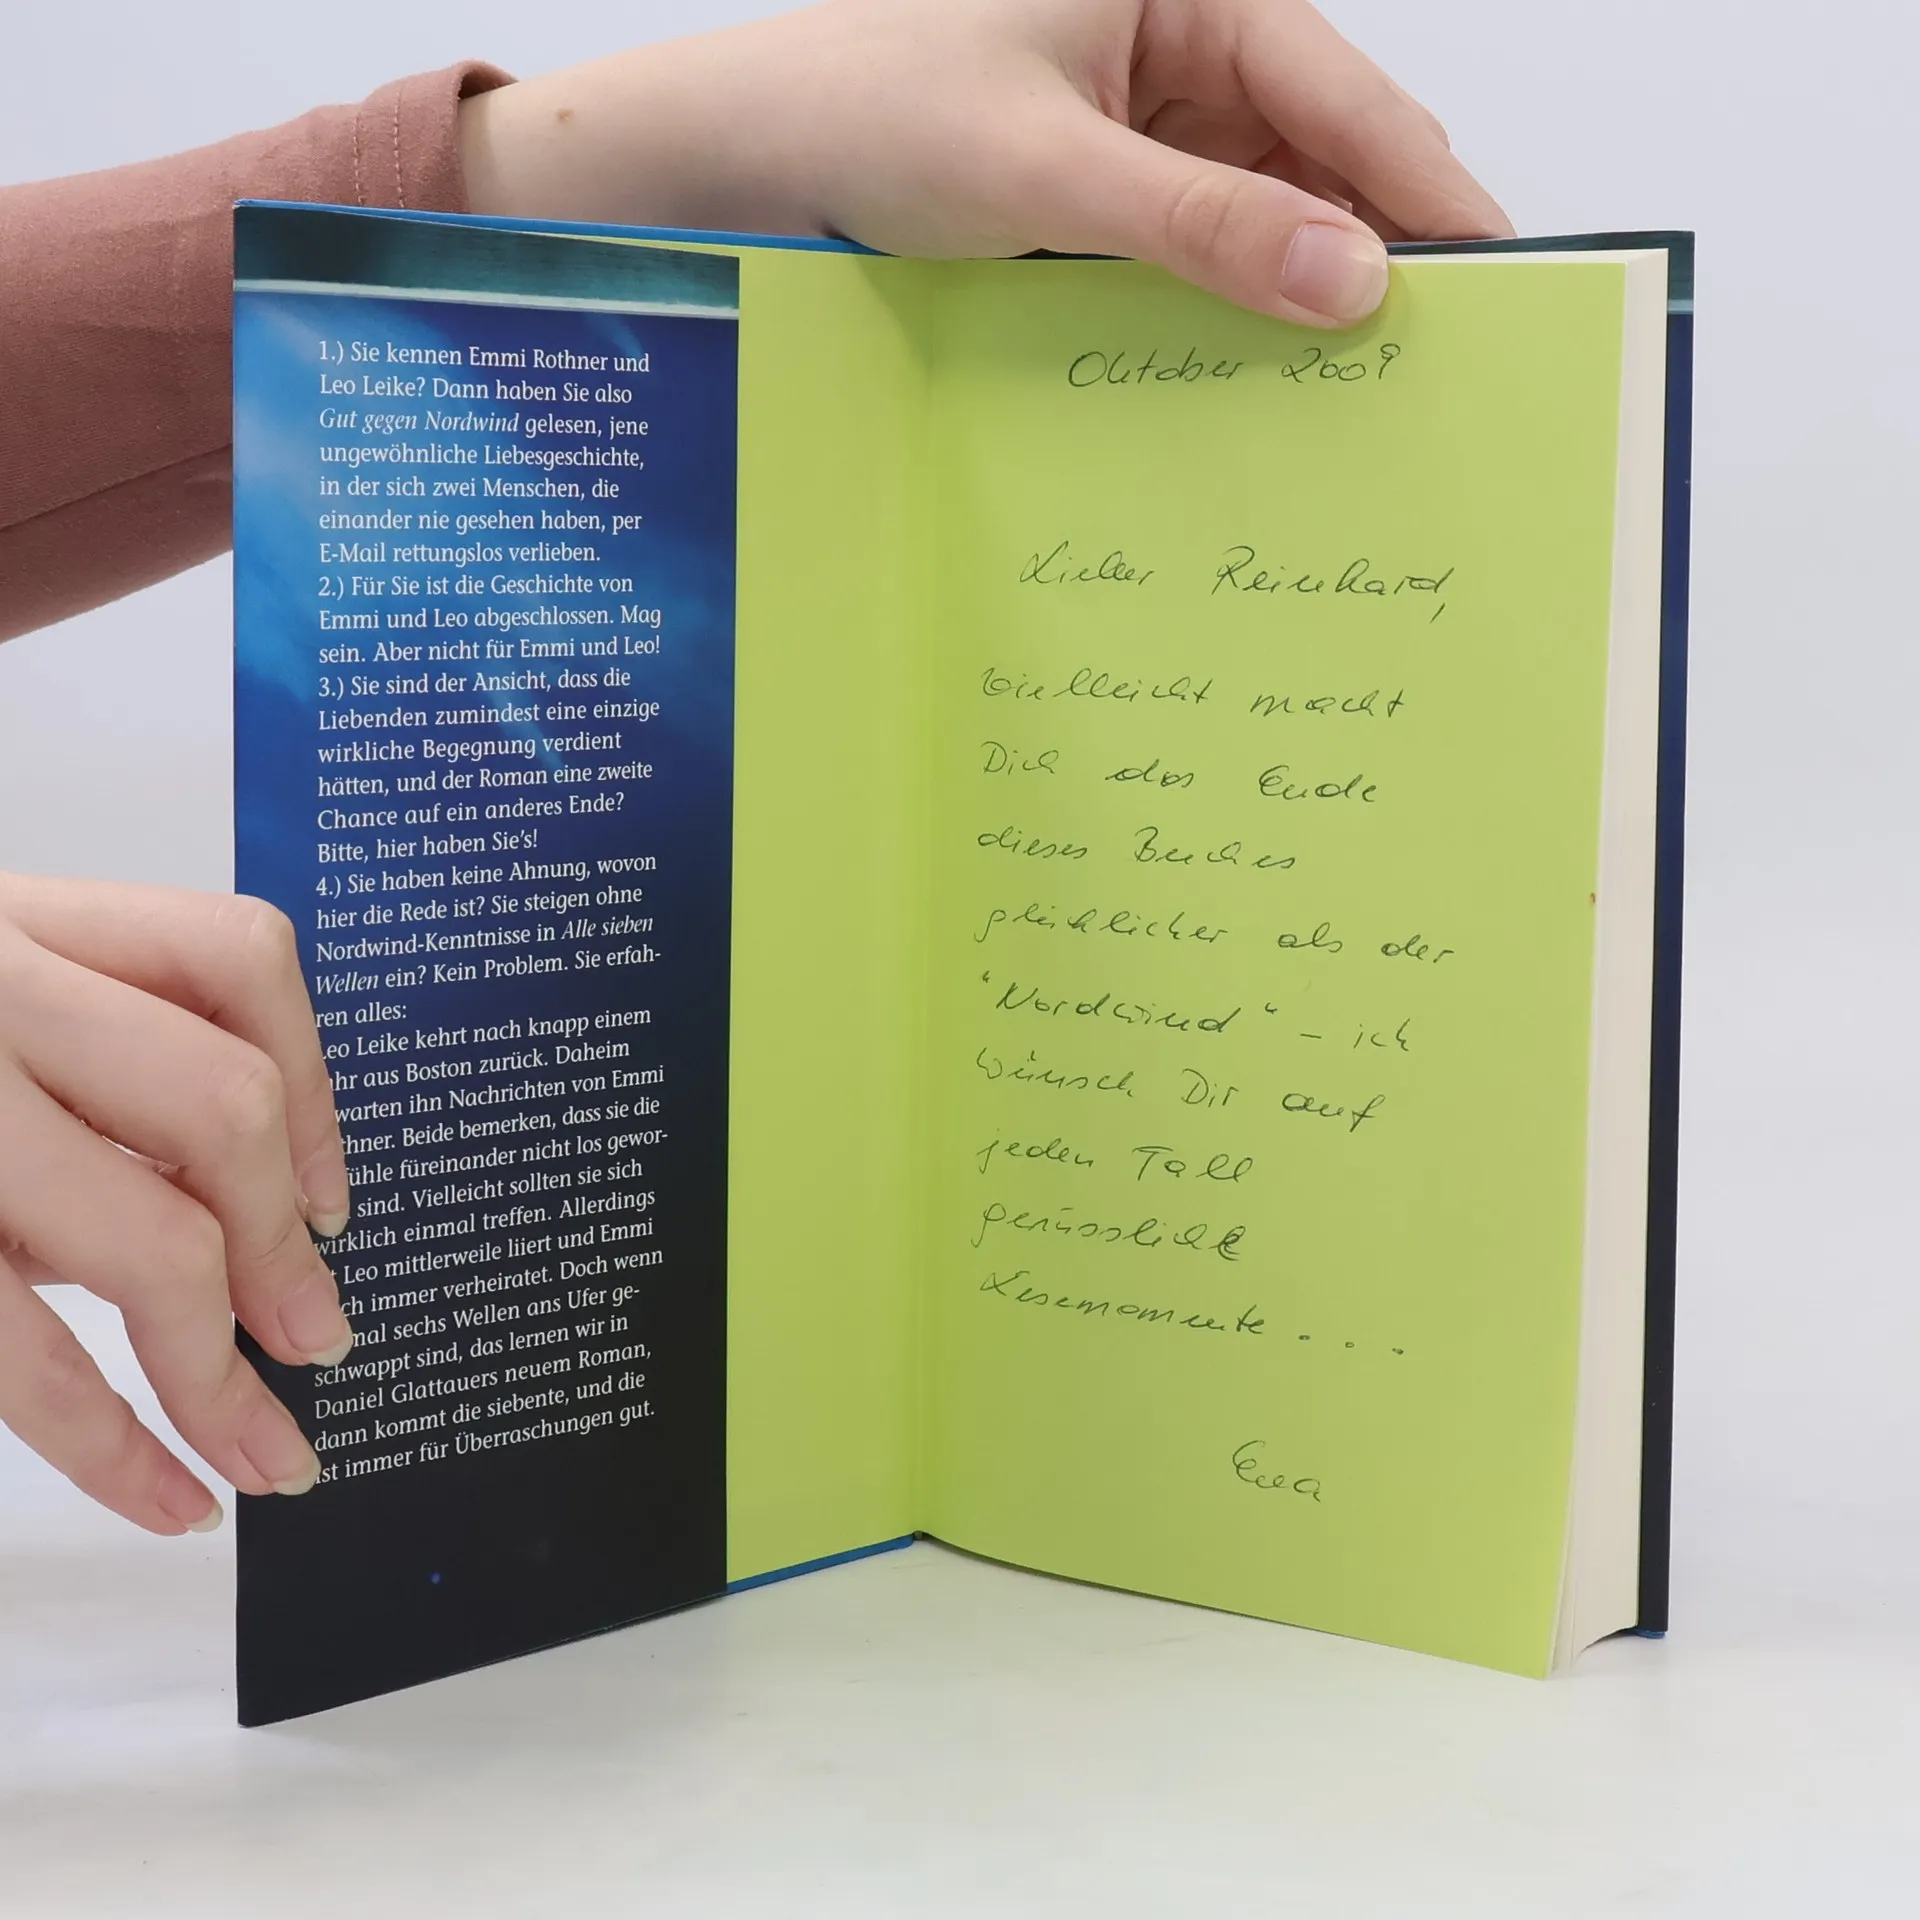 1.) Sie kennen Emmi Rothner und
Leo Leike? Dann haben Sie also
Gut gegen Nordwind gelesen, jene
ungewöhnliche Liebesgeschichte,
in der sich zwei Menschen, die
einander nie gesehen haben, per
E-Mail rettungslos verlieben.
2.) Für Sie ist die Geschichte von
Emmi und Leo abgeschlossen. Mag
sein. Aber nicht für Emmi und Leo!
3.) Sie sind der Ansicht, dass die
Liebenden zumindest eine einzige
wirkliche Begegnung verdient
hätten, und der Roman eine zweite
Chance auf ein anderes Ende?
Bitte, hier haben Sie's!
4.) Sie haben keine Ahnung, wovon
hier die Rede ist? Sie steigen ohne
Nordwind-Kenntnisse in Alle sieben
Wellen ein? Kein Problem. Sie erfah-
ren alles:
eo Leike kehrt nach knapp einem
hr aus Boston zurück. Daheim
warten ihn Nachrichten von Emmi
thner. Beide bemerken, dass sie die
ühle füreinander nicht los gewor-
sind. Vielleicht sollten sie sich
wirklich einmal treffen. Allerdings
t Leo mittlerweile liiert und Emmi
ch immer verheiratet. Doch wenn
mal sechs Wellen ans Ufer ge-
schwappt sind, das lernen wir in
Daniel Glattauers neuem Roman,
dann kommt die siebente, und die
ist immer für Überraschungen gut.
Oktober 2009
Lieber Reinhard,
vielleicht macht
Dich das Ende
dieses Buches
glücklicher als der
"Nordwind" – ich
wünsch Dir auf
jeden Fall
genüssliche
Lesemomente . . .
Eva